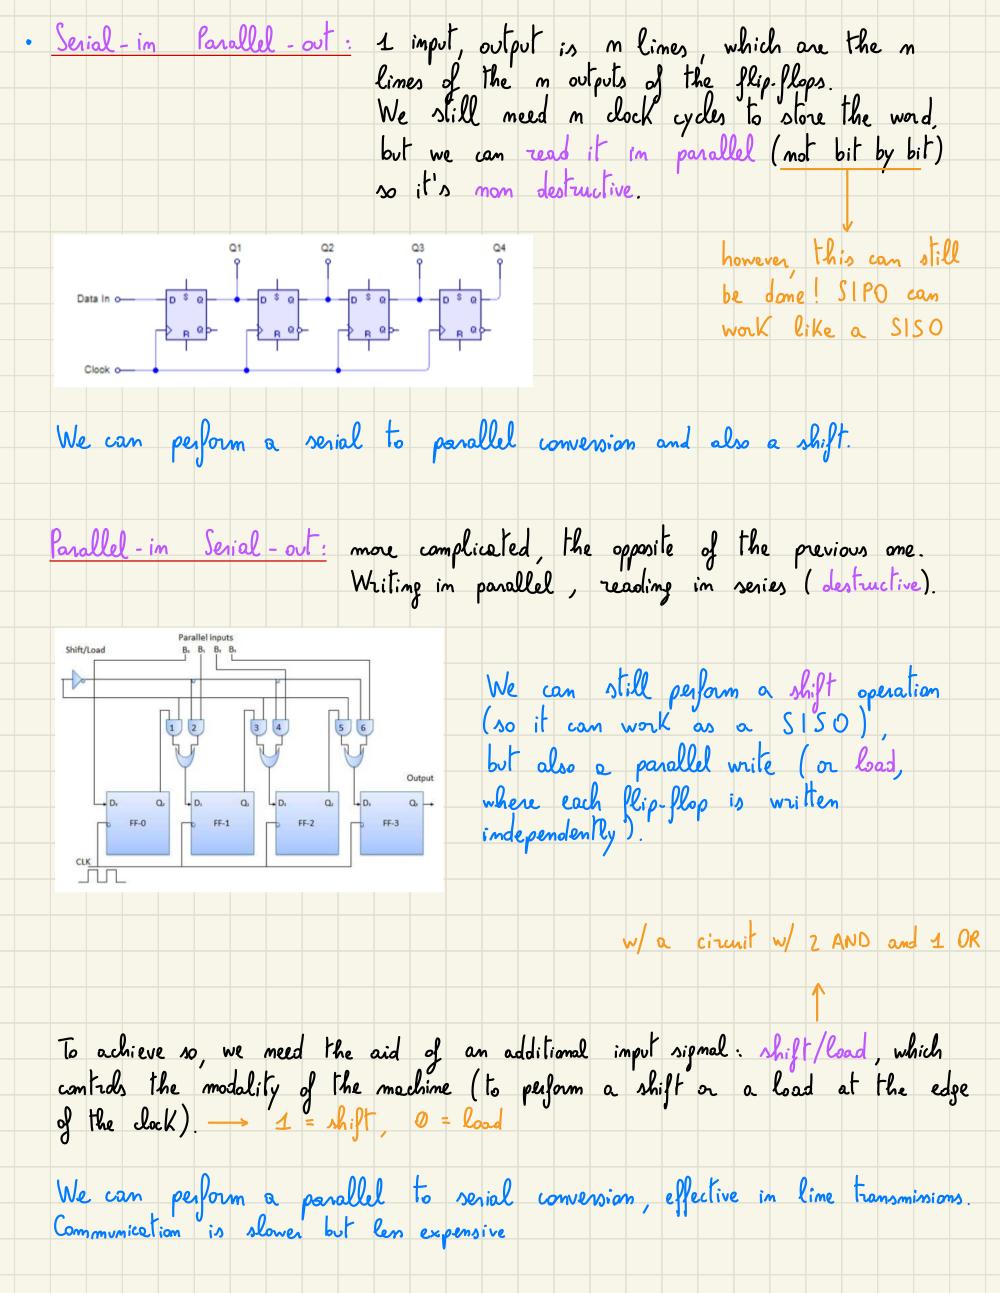 • Serial-in Parallel-out: 1 input, output is n lines, which are the n
lines of the n outputs of the flip-flops.
We still need n clock cycles to store the word,
but we can read it in parallel (not bit by bit)
so it's non destructive.
however, this can still
be done! SIPO can
work like a SISO
Q1 Q2 Q3 Q4
Data In D S Q D S Q D S Q D S Q
R Q R Q R Q R Q
Clock
We can perform a serial to parallel conversion and also a shift.
Parallel-in Serial-out: more complicated, the opposite of the previous one.
Writing in parallel, reading in series (destructive).
Parallel inputs
Shift/Load
1 2 3 4 5 6
Output
FF-0 FF-1 FF-2 FF-3
CLK
We can still perform a shift operation
(so it can work as a SISO),
but also a parallel write (or load,
where each flip-flop is written
independently).
w/ a circuit w/ 2 AND and 1 OR
To achieve so, we need the aid of an additional input signal: shift/load, which
controls the modality of the machine (to perform a shift or a load at the edge
of the clock). → 1 = shift, 0 = load
We can perform a parallel to serial conversion, effective in line transmissions.
Communication is slower but less expensive